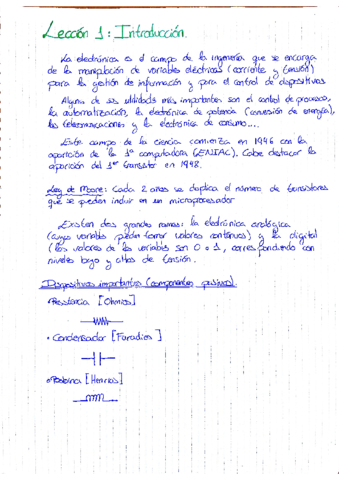 Lección 1: Introducción.
La electrónica es el campo de la ingeniería que se encarga
de la manipulación de variables eléctricas (corriente y tensión)
para la gestión de información y para el control de dispositivos
Alguna de sus utilidads más importantes son el control de procesos,
la automatización, la electrónica de potencia (conversión de energía),
las telecomunicaciones y la electrónica de consumo....
Este campo de la ciencia comienza en 1946 con la
aparición de la 1ª computadora (ENIAC). Cabe destacar la
aparición del 1er transistor en 1948.
Ley de Moore: Cada 2 años se duplica el número de transistores
que se pueden incluir en un microprocesador
Existen dos grandes ramas: la electrónica analógica
(cuyas variables pueden tomar valores continuos) y la digital
(los valores de las variables son 0 o 1, correspondiendo con
niveles bajos y altos de tensión.
Dispositivos importantes (componentes pasivos).
Resistencia [Ohmios]
• Condensador [Faradios]
• Bobina [Henrios]